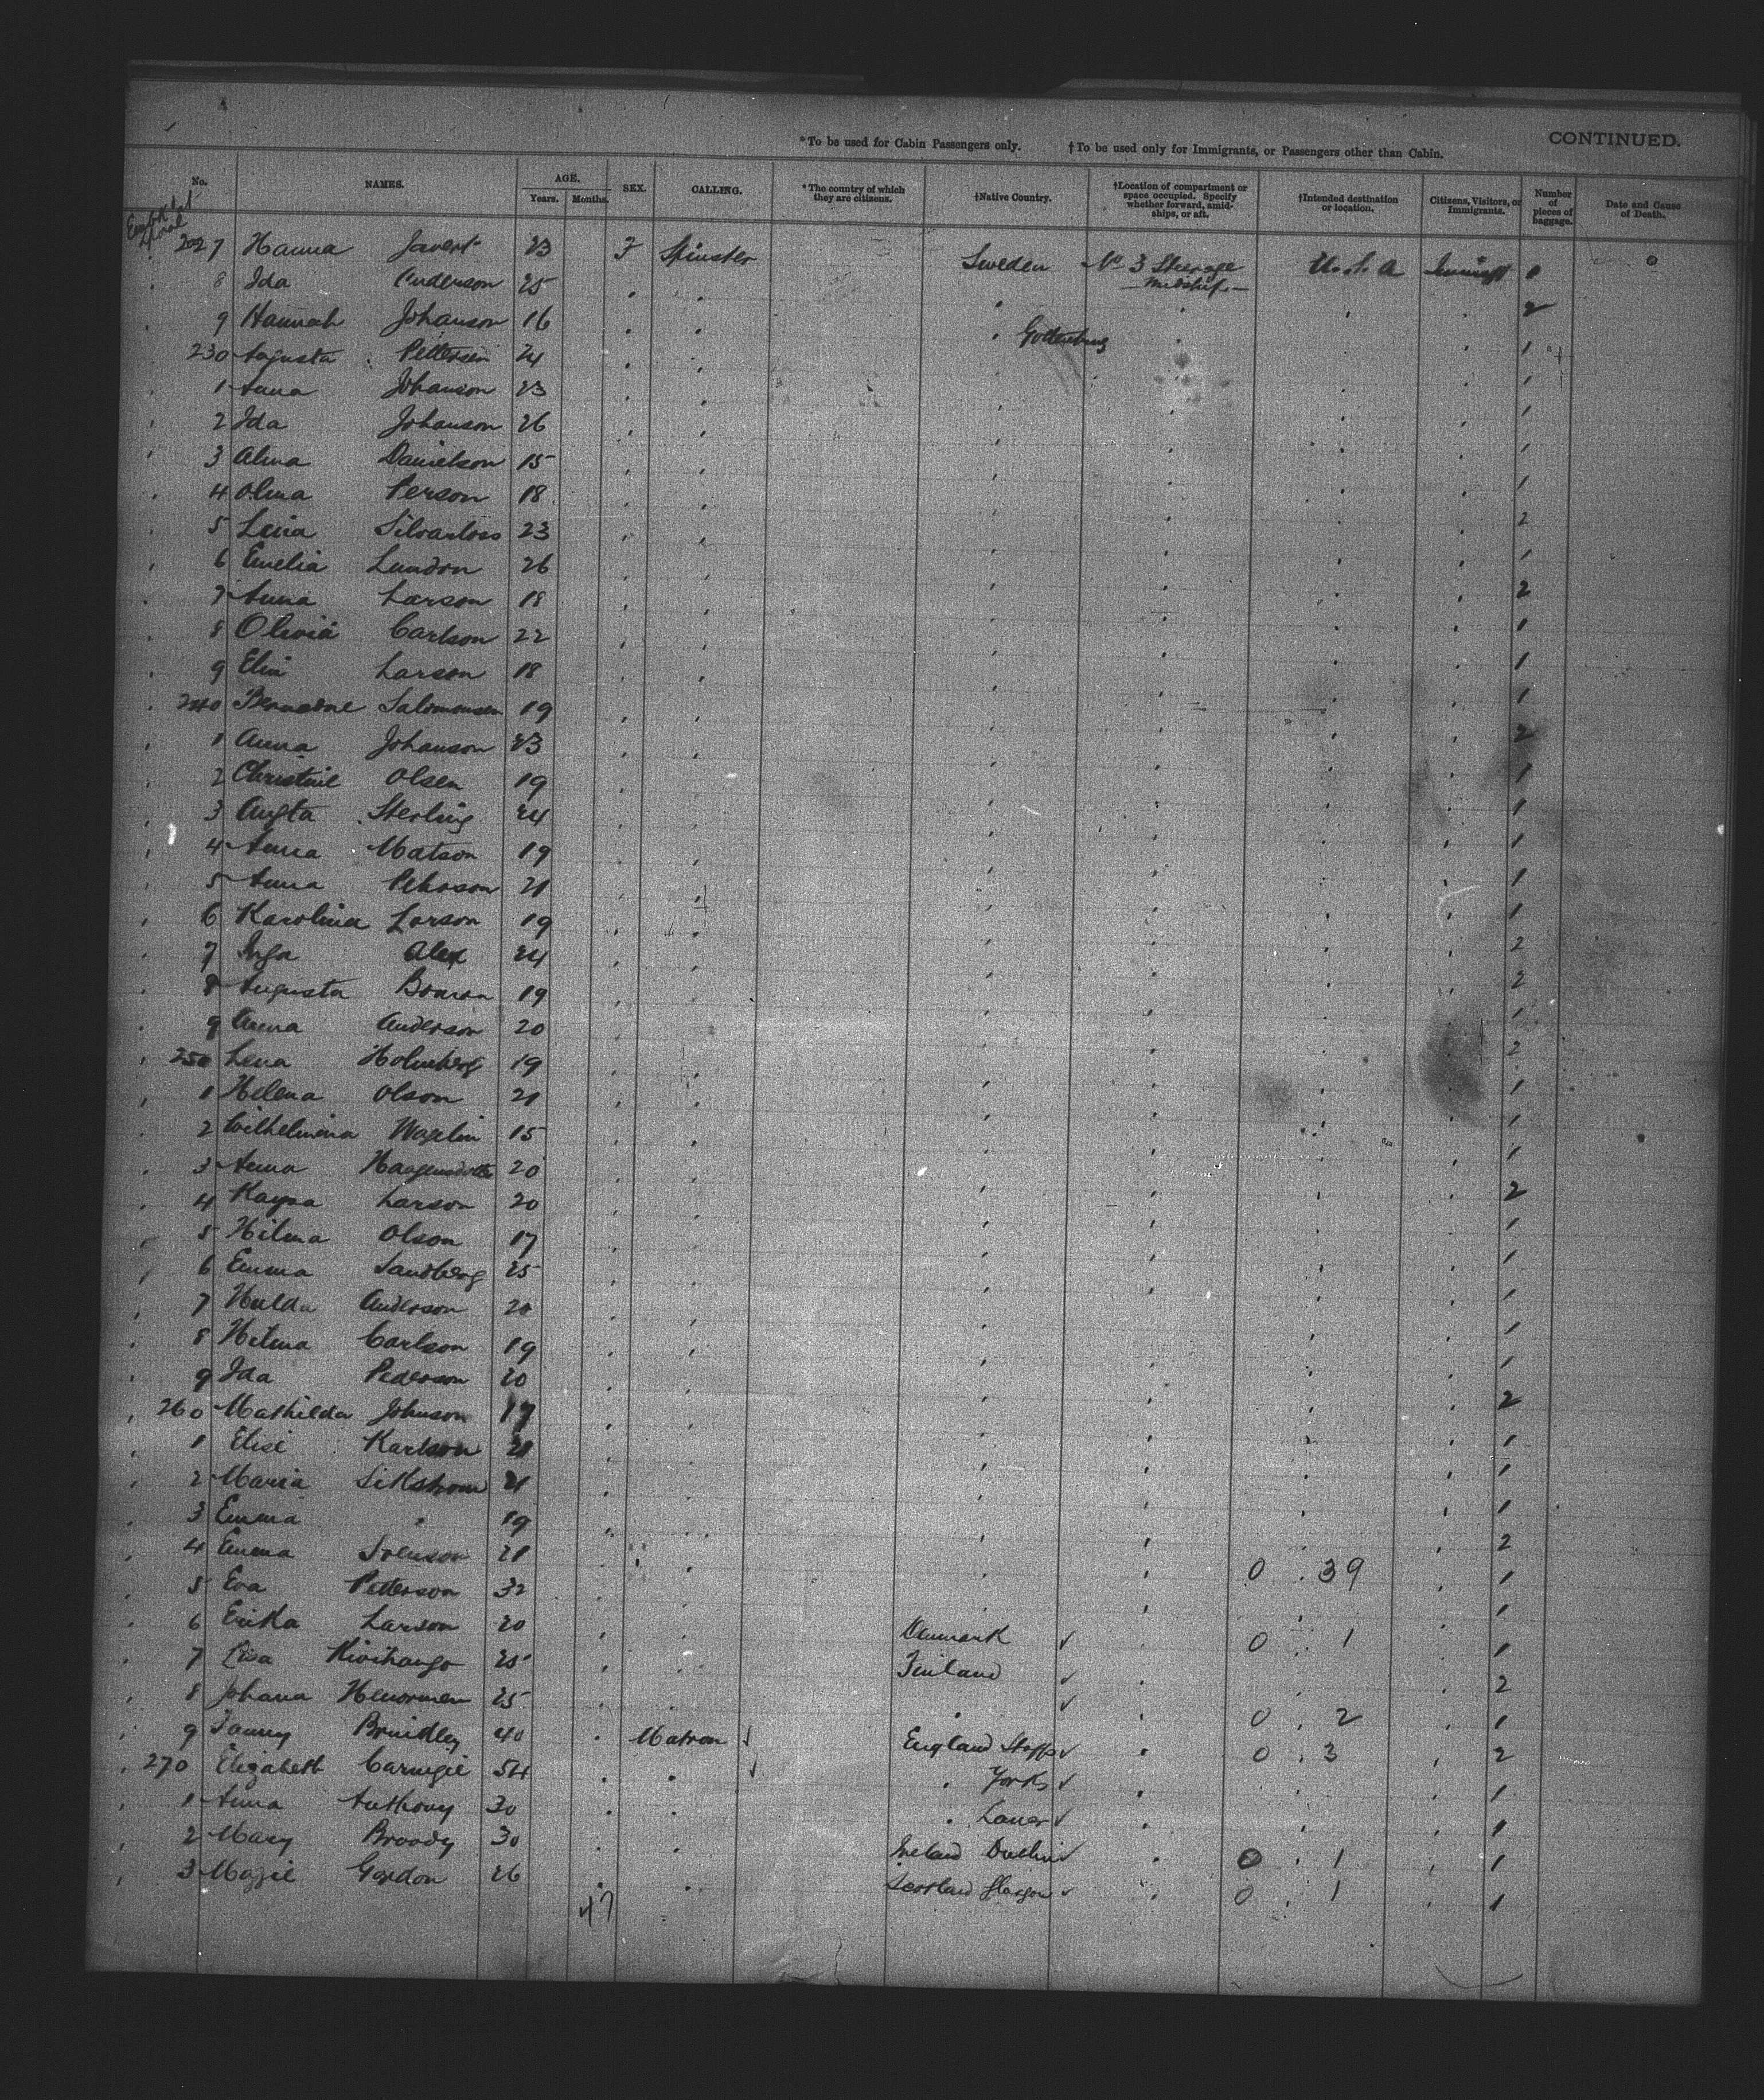 CONTINUED.
*To be used for Cabin Passengers only. †To be used only for Immigrants, or Passengers other than Cabin.
No. NAMES. AGE. Years. Months. SEX. CALLING. *The country of which they are citizens. †Native Country. †Location of compartment or space occupied. Specify whether forward, amidships, or aft. †Intended destination or location. Citizens, Visitors, or Immigrants. Number of pieces of baggage. Date and Cause of Death.
Hanna 23 F Spinster Sweden No 3 Steerage U.S.A 1
Midship
8 Ida Anderson 25 2
9 Hannah Johanson 16 Gottenburg 1
230 Augusta Petterson 24 1
1 Anna Johanson 23 1
2 Ida Johanson 26 1
3 Alma Danielson 15 1
4 Olma Person 18 2
5 Lena 23 1
6 Emelia Lundon 26 2
7 Anna Larson 18 1
8 Olivia Carlson 22 1
9 Elin Larson 18 1
240 Salomonsen 19 2
1 Anna Johanson 23 1
2 Christine Olsen 19 1
3 Augta Sterling 24 1
4 Anna Matson 19 1
5 Anna Pehrson 21 1
6 Karolina Larson 19 2
7 Inga Alex 24 2
8 Augusta 19 1
9 Anna Anderson 20 2
250 Lena Holmberg 19 1
1 Helena Olson 21 1
2 Wilhelmina Wagelin 15 1
3 Anna 20 2
4 Kaysa Larson 20 1
5 Hilma Olson 17 1
6 Emma Sandberg 25 1
7 Hulda Anderson 20 1
8 Hilma Carlson 19 1
9 Ida Pederson 20 2
260 Mathilda Johnson 17 1
1 Elise Karlson 21 1
2 Maria Sikstrom 21 1
3 Emma " 19 2
4 Emma Svenson 21 0 39 1
5 Eva Petterson 32 1
6 Erika Larson 20 Denmark ✓ 0 1 1
7 Lisa 25 Finland ✓ 2
8 Johana 25 ✓ 0 2 1
9 Fanny Brindley 40 Matron ✓ England Staffs ✓ 0 3 2
270 Elizabeth Carnegie 54 ✓ Yorks ✓ 1
1 Anna Anthony 30 Lancr ✓ 1
2 Mary Broody 30 Ireland Dublin ✓ 0 1 1
3 Maggie Gordon 26 Scotland Glasgow ✓ 0 1 1
47